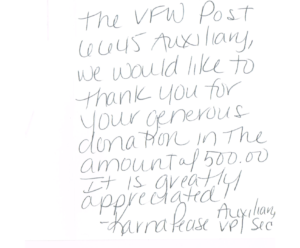 The VFW Post
6645 Auxiliary,
we would like to
thank you for
your generous
donation in The
amount of 500.00
It is greatly
appreciated!
-Karna Pease Auxiliary,
VP/Sec